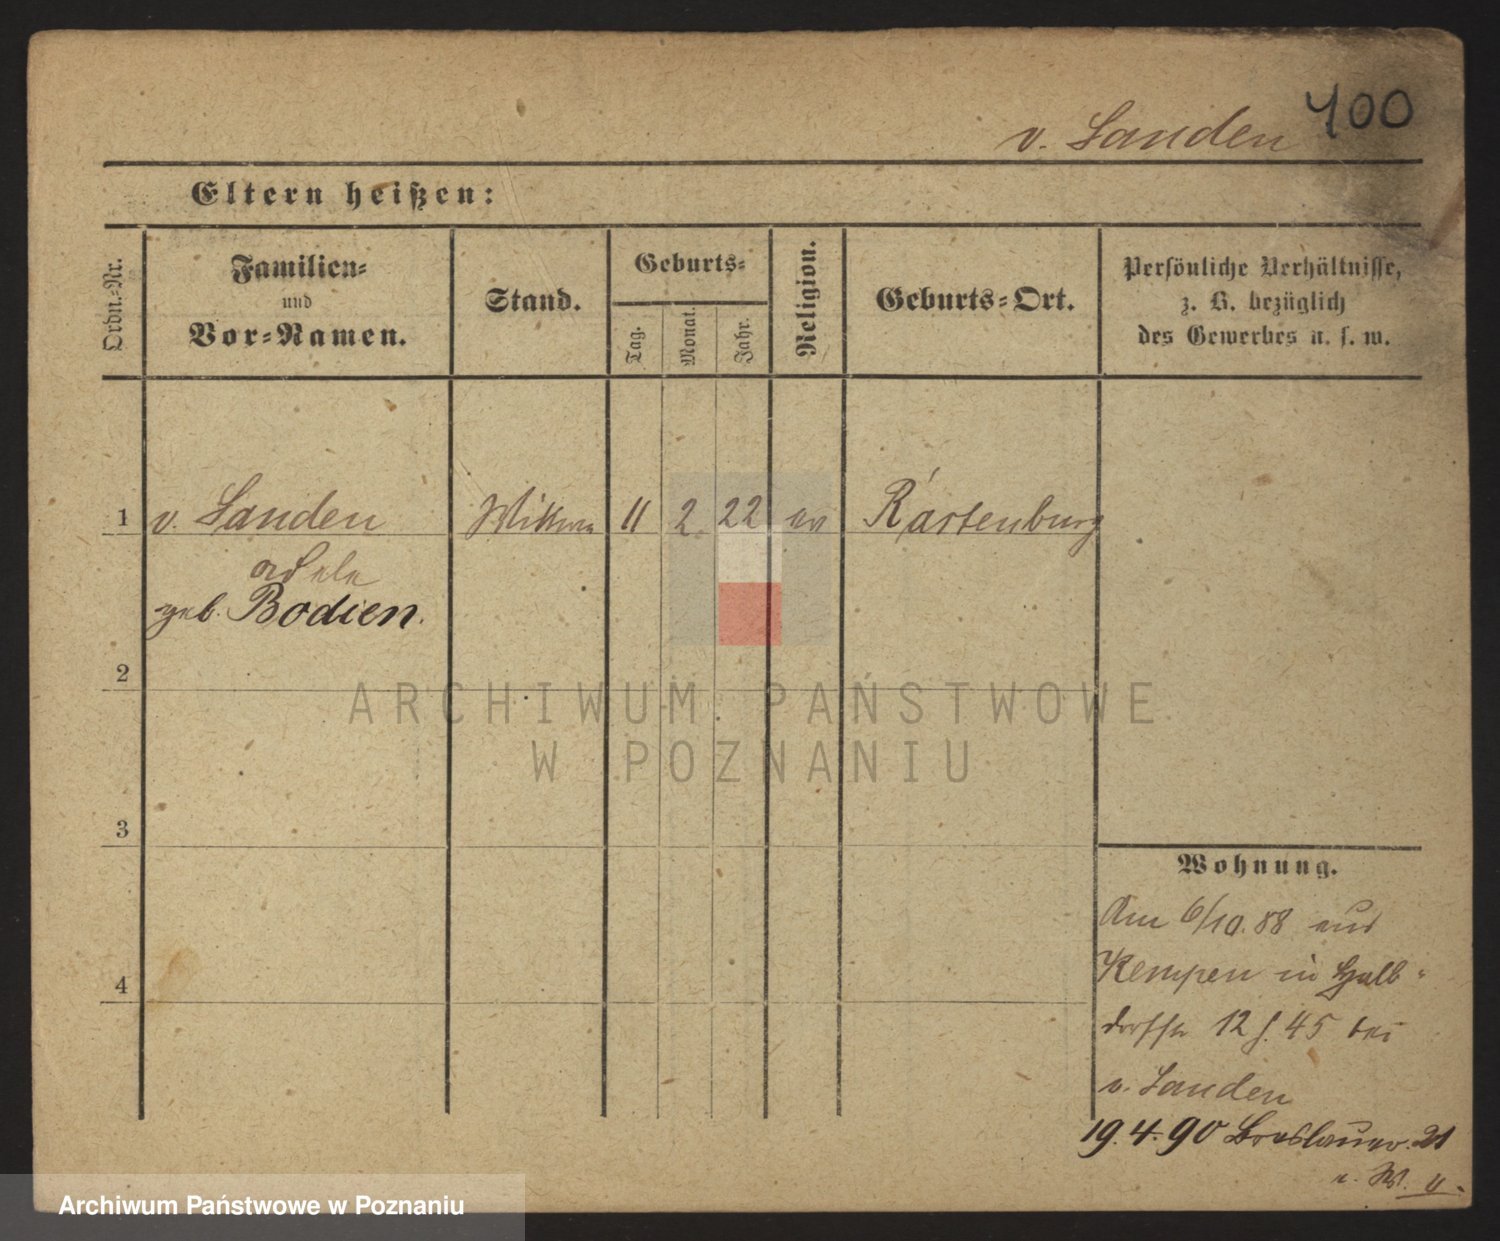 v. Landen 400
Eltern heißen:
Ordn.-Nr.
Familien-
und
Vor-Namen.
Stand.
Geburts-
Tag.
Monat.
Jahr.
Religion.
Geburts-Ort.
Persönliche Verhältnisse,
z. B. bezüglich
des Gewerbes u. s. w.
1 v. Landen Wittwe 11 2 22 ev Rastenburg
Adele
geb. Bodien.
2
3
4
Wohnung.
Am 6/10. 88 aus
Kempen in Halb-
dorfstr 12 f. 45 bei
v. Landen
19.4.90 Breslauer. 21
ARCHIWUM PAŃSTWOWE
W POZNANIU
Archiwum Państwowe w Poznaniu